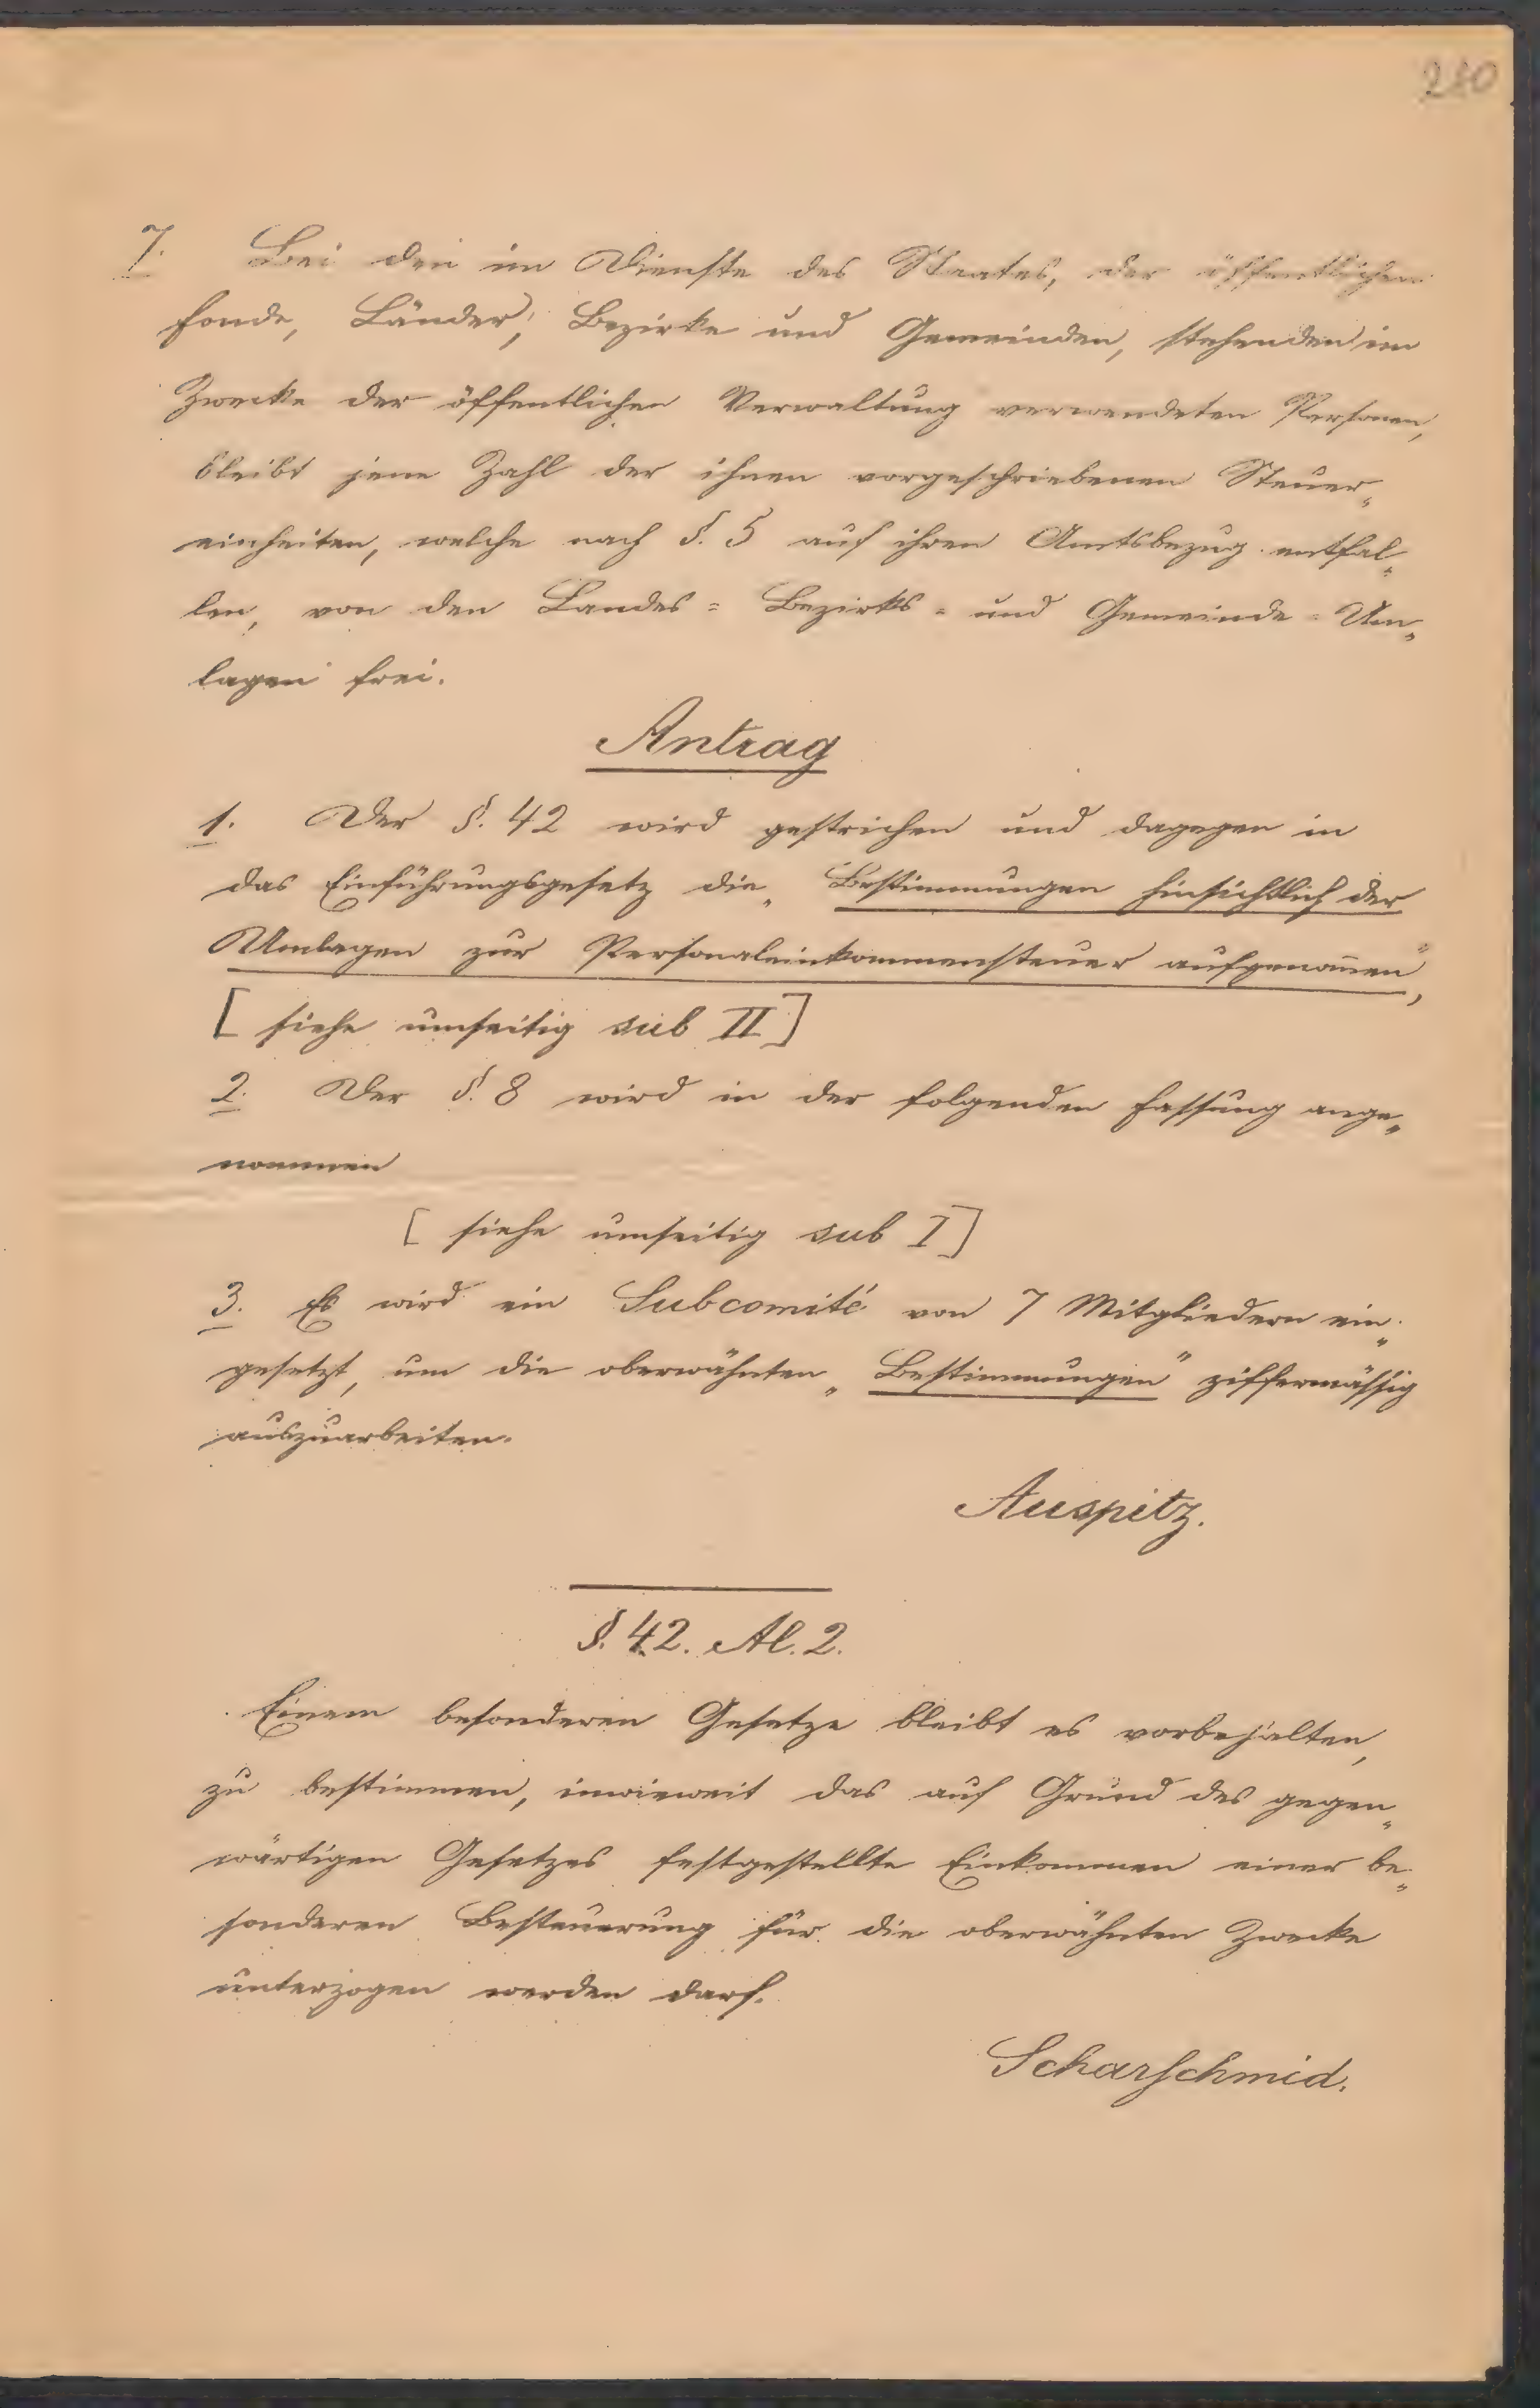 280
7. Bei den im Dienste des Staates, der öffentlichen
Fonde, Länder, Bezirke und Gemeinden, stehenden im
Zwecke der öffentlichen Verwaltung verwendeten Personen,
bleibt jene Zahl der ihnen vorgeschriebenen Steuer„
einheiten, welche nach §. 5 auf ihren Amtsbezug entfal„
len, von den Landes= Bezirks= und Gemeinde=Um„
lagen frei.
Antrag
1. Der §. 42 wird gestrichen und dagegen in
das Einführungsgesetz die „Bestimmungen hinsichtlich der
Umlagen zur Personaleinkommensteuer aufgenom̄en",
[siehe umseitig sub II]
2. Der §. 8 wird in der folgenden Fassung ange„
nommen
[siehe umseitig sub I]
3. Es wird ein Subcomité von 7 Mitgliedern ein„
gesetzt, um die oberwähnten „Bestimmungen" ziffermässig
auszuarbeiten.
Auspitz.
§. 42. Al. 2.
Einem besonderen Gesetze bleibt es vorbehalten,
zu bestimmen, inwieweit das auf Grund des gegen„
wärtigen Gesetzes festgestellte Einkommen einer be„
sonderen Besteuerung für die oberwähnten Zwecke
unterzogen werden darf.
Scharschmid.